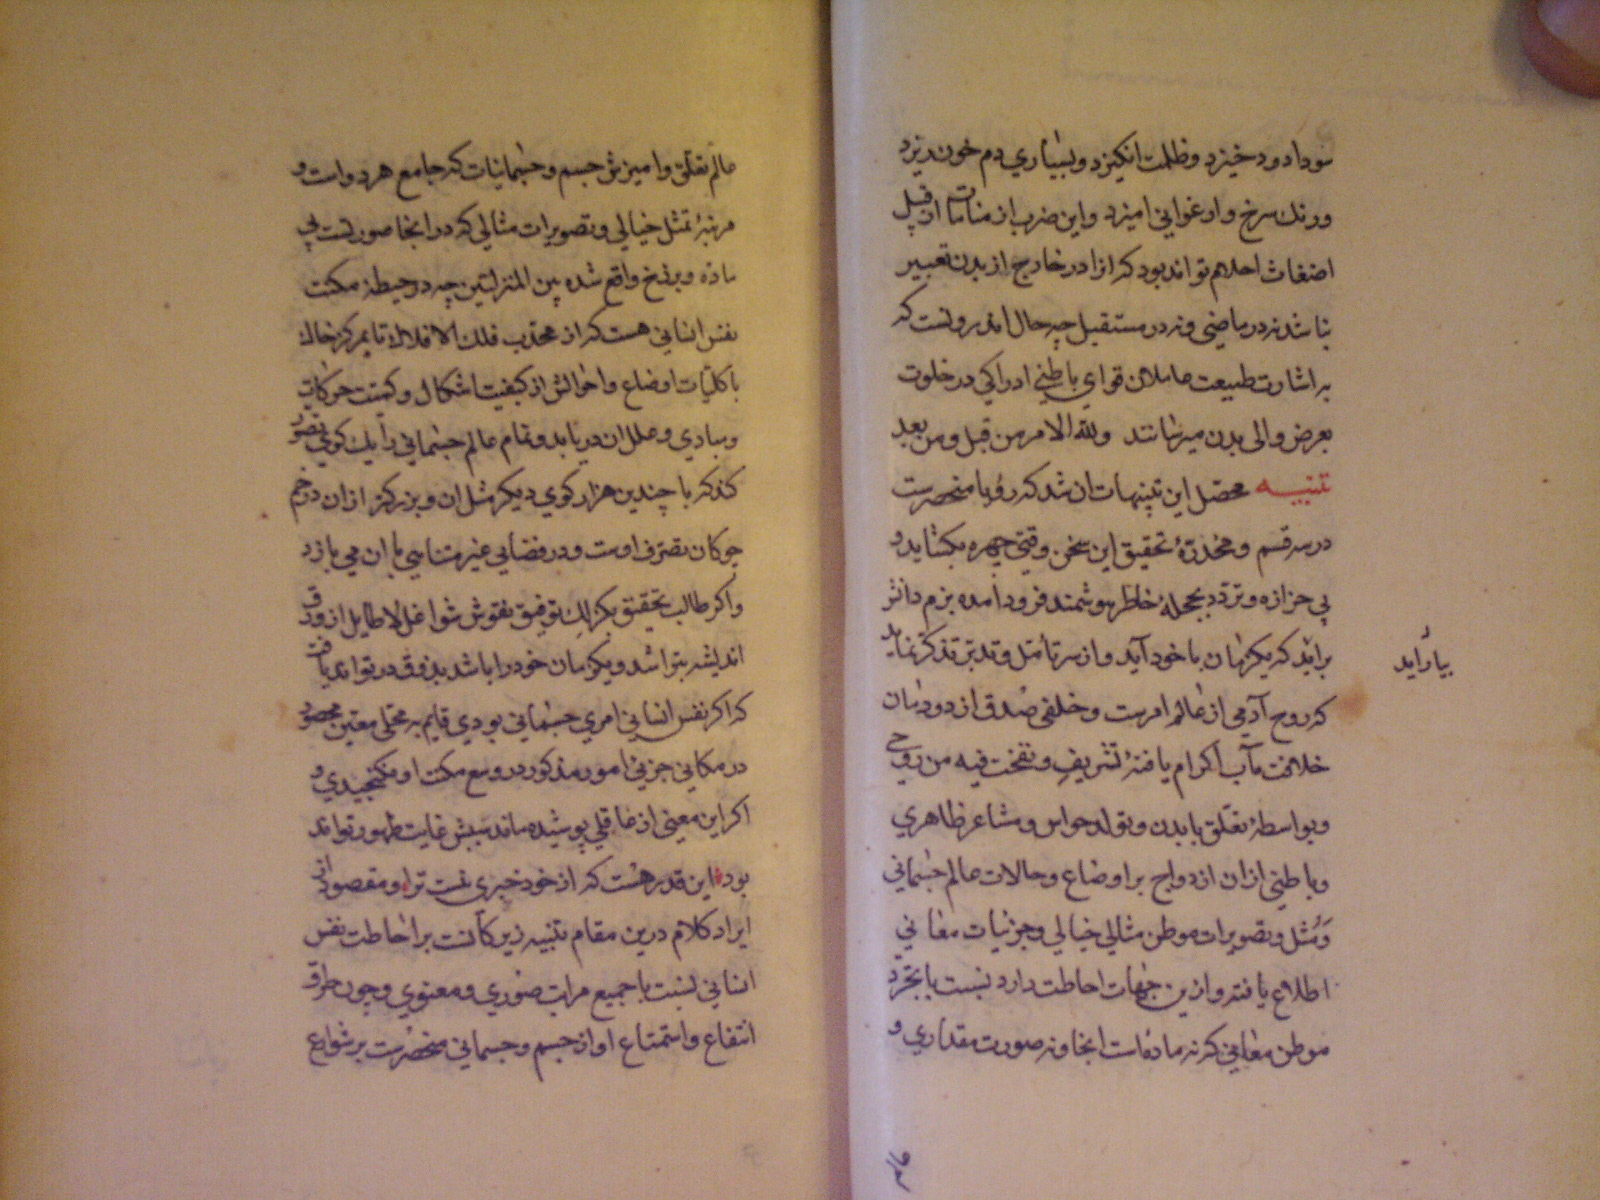 سودا دود خیزد و ظلمت انکیزد و بسیاری دم خون ریزد
و رنك سرخ و ارغوانی امیزد و این ضرب از منامات از قبیل
اضغاث احلام تواند بود که انرا در خارج از بدن تعبیر
نباشد نه در ماضی و نه در مستقبل چه حال اندرونست که
به اشارت طبیعت حاملان قوای باطنی ادراکی در خلوت
بعرض والی بدن میرسانند ولله الامر من قبل ومن بعد
تنبیه محصل این تنبیهات ان شد که رؤیا منحصرست
در سه قسم و مخدرهٔ تحقیق این سخن وقتی چهره بکشاید و
بی حزازه و تردد بحجلهٔ خاطر هوشمند فرود امده بزم دانش
براید که یکزمان با خود آید و از سر تامل و تدبر تذکر نماید
بیاراید
که روح آدمی از عالم امرست و خلفی صدق از دودمان
خلافت مآب اکرام یافتهٔ تشریف ونفخت فیه من روحی
و بواسطهٔ تعلق با بدن و تولد حواس و مشاعر ظاهری
و باطنی از ان ازدواج بر اوضاع و حالات عالم جسمانی
و مثل و تصویرات موطن مثالی خیالی و جزئیات معانی
اطلاع یافته و ازین جهات احاطت دارد نسبت با تجرد
موطن معانی که نه ماده است انجا و نه صورت مقداری و
عالم تعلق و امیزش جسم و جسمانیات که جامع هر دو است و
مرتبهٔ تمثل خیالی و تصویرات مثالی که در انجا صورتست بی
ماده و برزخ واقع شده بین المنزلتین چه در حیطهٔ مکنت
نفس انسانی هست که از محدب فلك الافلاك تا بمرکز خاك
با کلیات اوضاع و احوالش از کیفیت اشکال و کمیت حرکات
و مبادی و علل ان دریابد و تمام عالم جسمانی را یك کوی تصور
کند که با چندین هزار کوی دیکر مثل ان و بزرکتر از ان در خم
چوکان تصرف اوست و در فضایی غیر متناهی با ان می بازد
و اکر طالب تحقیق بکزلك توفیق نقوش شواغل لا طایل از ورق
اندیشه بتراشد و یکزمان خود را باشد بذوق در تواند یافت
که اکر نفس انسانی امری جسمانی بودی قایم به محلی معین محصور
در مکانی جزئی امور مذکور در وسع مکنت او نکنجیدی و
اکر این معنی از عاقلی پوشیده ماند سببش غایت ظهور تواند
بود این قدر هست که از خود خبری نیست ترا و مقصود از
ایراد کلام درین مقام تنبیه زیرکانست بر احاطت نفس
انسانی نسبت با جمیع مراتب صوری و معنوی و چون طرق
انتفاع و استمتاع او از جسم و جسمانی منحصرست بر شوارع